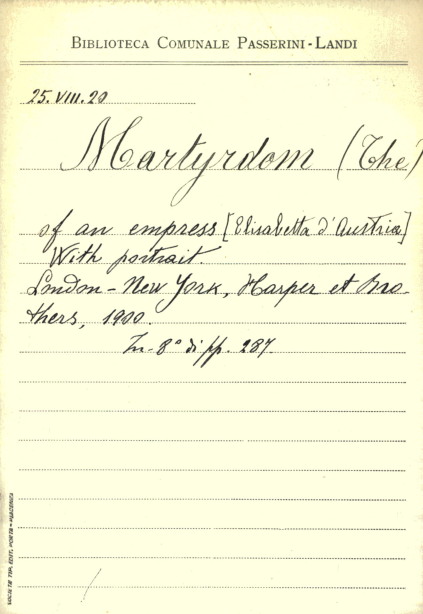 BIBLIOTECA COMUNALE PASSERINI-LANDI
25.VIII.20
Martyrdom (The)
of an empress [Elisabetta d'Austria]
With portrait.
London - New York, Harper et Bro-
thers, 1900.
In-8° di pp. 287.
SOCIETÀ TIP. EDIT. PORTA - PIACENZA